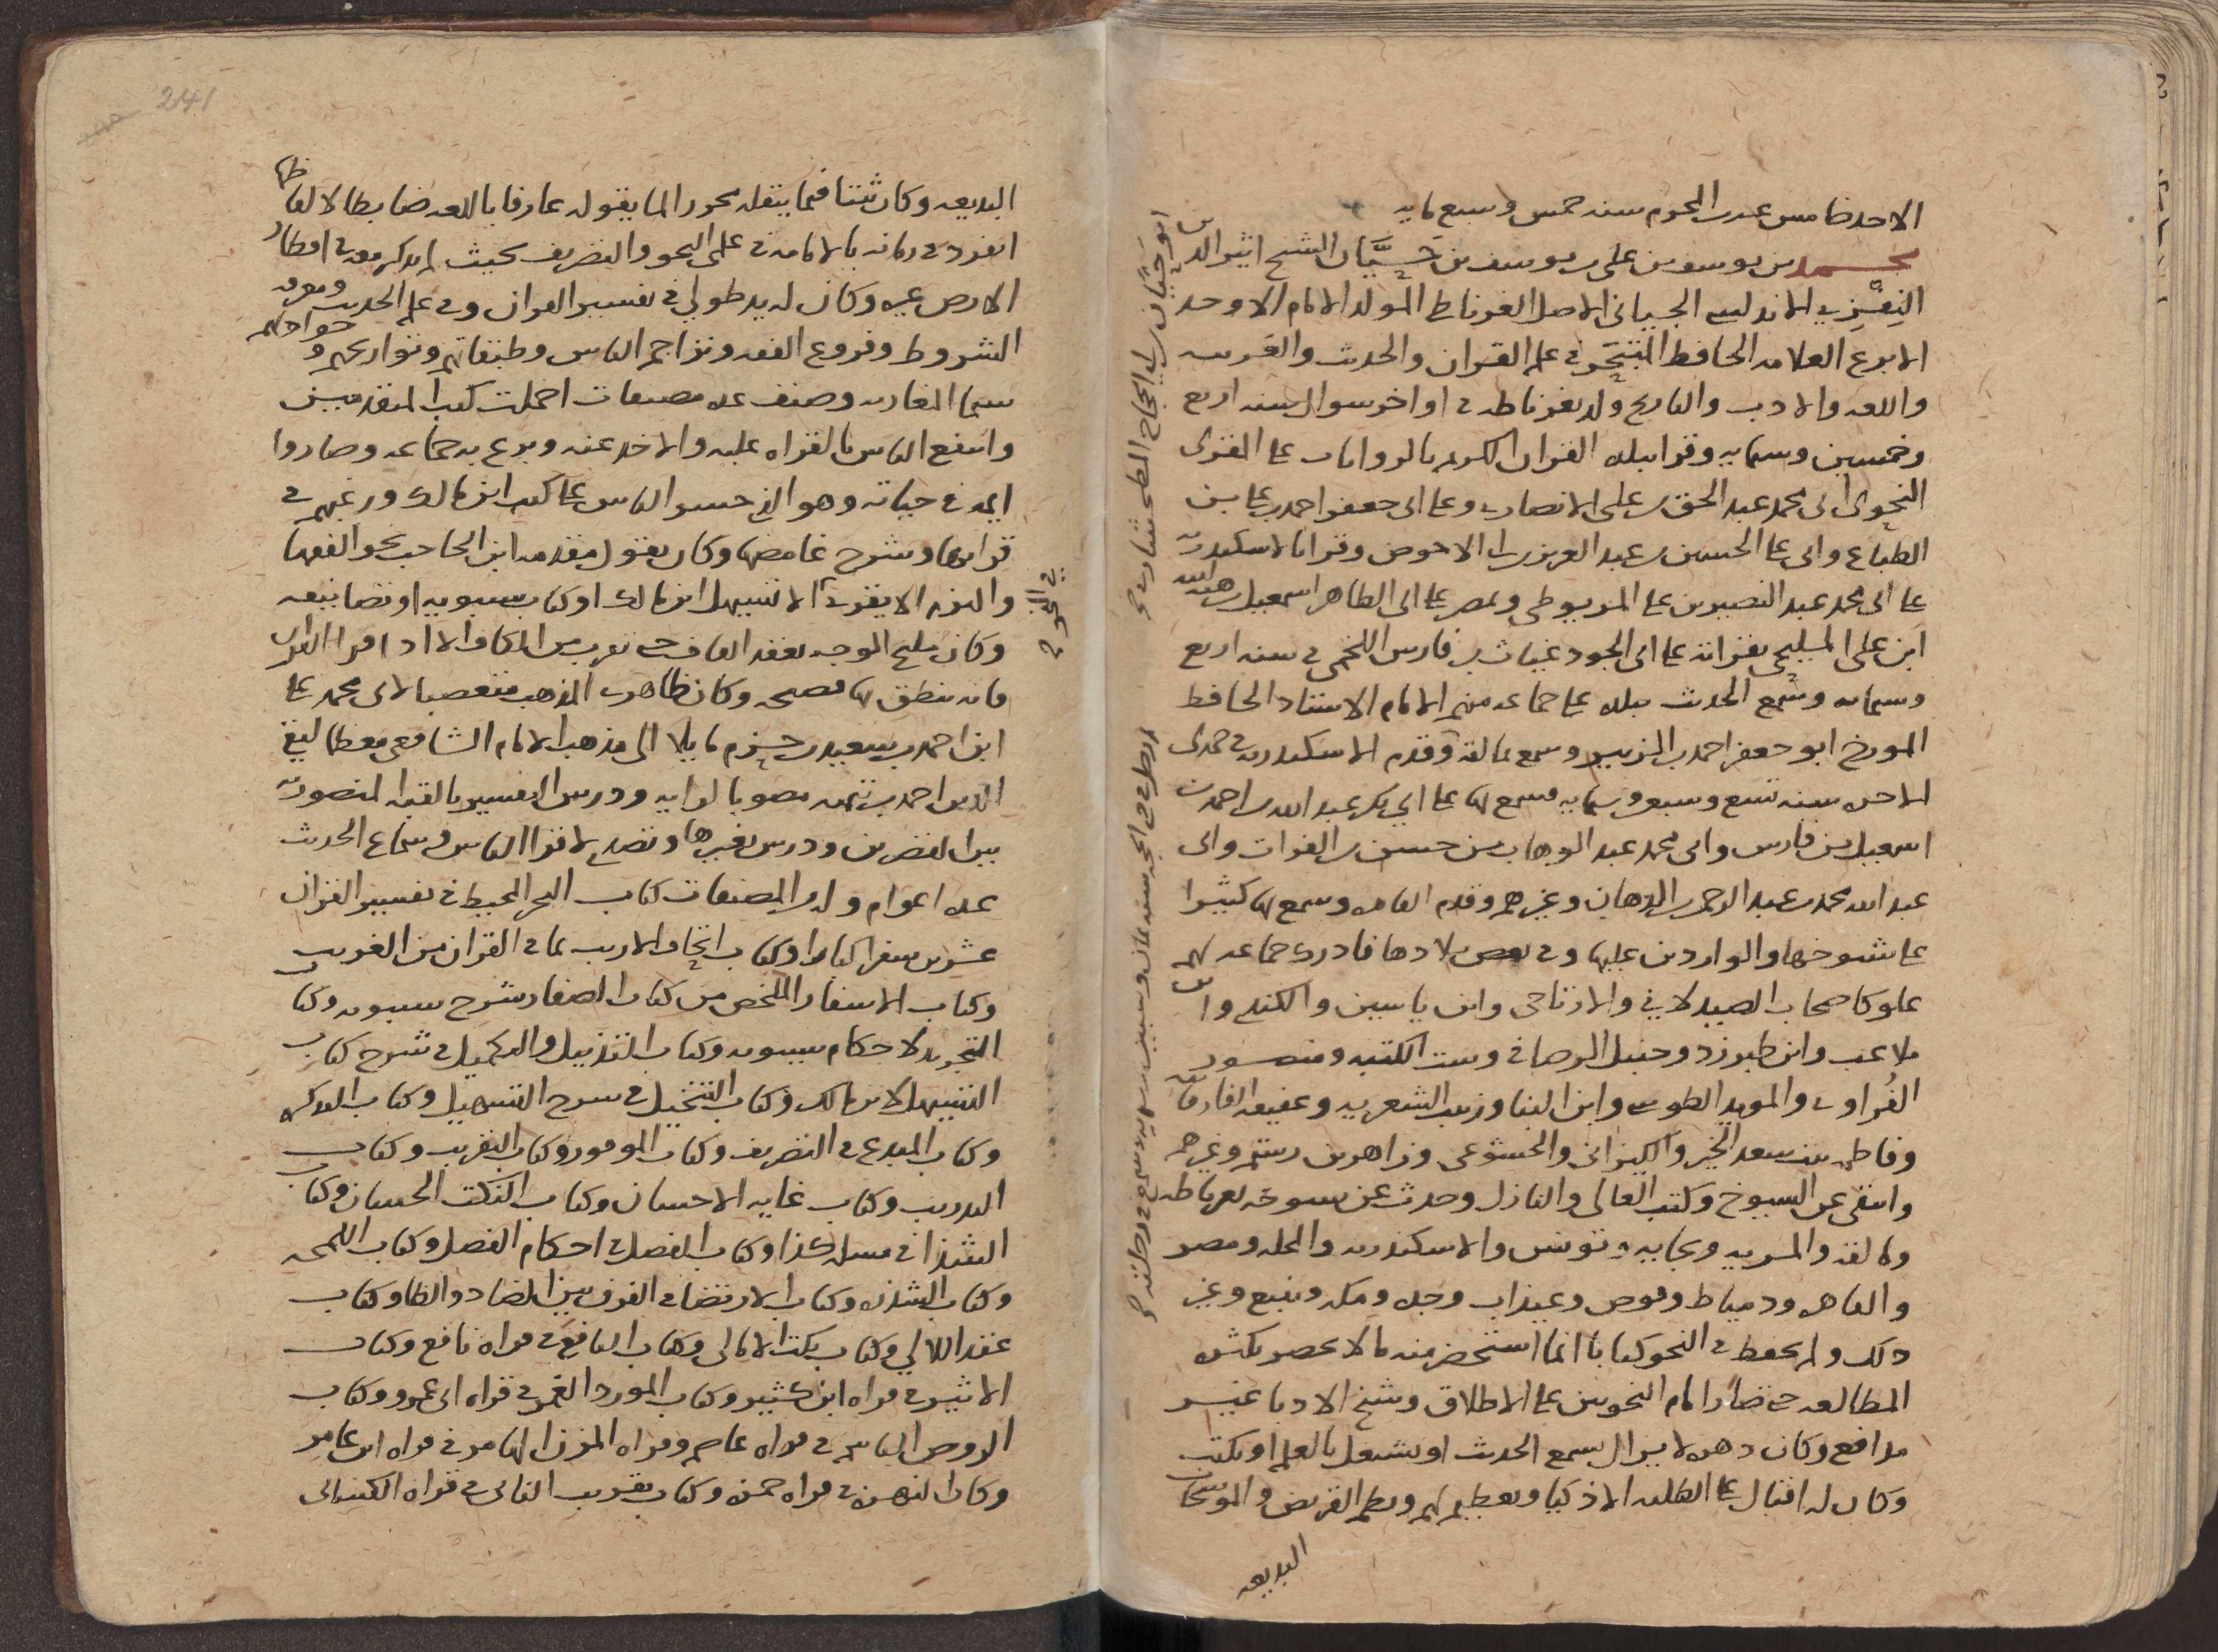 الاحد خامس عشر المحرم سنه خمس وسبع مايه
محمد بن يوسف بن على بن يوسف بن حَيَّان الشيخ اثير الدين ابو حيان
النِفْزِي الاندلسي الجياني الاصل الغرناطي المولد الامام الاوحد
الابرع العلامه الحافظ المتبحر في علم القران والحدث والعربيه
واللغه والادب والتاريخ ولد بغرناطه في اواخر شوال سنه اربع
وخمسين وستمايه وقرا ببلده القران الكريم بالروايات على المقرى
النحوى ابى محمد عبد الحق بن على الانصاري وعلى ابى جعفر احمد بن على بن
الطباع وابى على الحسين بن عبد العزيز بن ابى الاحوص وقرا بالاسكندريه
على ابى محمد عبد النصير بن على المربوطي وبمصر على ابى الطاهر اسمعيل بن هبه الله
ابن على المليجي بقراته على ابى الجود غياث بن فارس اللخمى في سنه اربع
وستمايه وسمع الحدث ببلده على جماعه منهم الامام الاستاد الحافظ
المورخ ابو جعفر احمد بن الزبير وسمع بمالقه وقدم الاسكندريه في جمدى
الاخره سنه تسع وسبعين وستمايه فسمع بها على ابي بكر عبد الله بن احمد بن
اسمعيل بن فارس وابى محمد عبد الوهاب بن حسن بن الفرات وابى
عبد الله محمد بن عبد الرحمن بن الدهان وغيرهم وقدم القاهره وسمع بها كثيرا
على شيوخها والواردين عليها وفي بعض بلادها فادرك جماعه لهم
علو كاصحاب الصيدلاني والارتاحى وابن ياسين والكندي وابن
ملاعب وابن طبرزد وحنبل الرصافى وست الكتبه ومنصور
الفُراوى والمويد الطوسى وابن البنا وزينب الشعريه وعفيفه الفارفانيه
وفاطمه بنت سعد الخير والكيزانى والخشوعى وزاهر بن رستم وغيرهم
وانتقى عن الشيوخ وكتب العالى والنازل وحدث عن شيوخه بغرناطه
ومالقه والمريه وبجايه وتونس والاسكندريه والمحله ومصر
والقاهره ودمياط وقوص وعيذاب وجده ومكه وينبع وغير
ذلك ولم يحفظ في النحو كتابا انما استحضر منه ما لا يحصر بكثره
المطالعه حتى صار امام النحويين على الاطلاق وشيخ الادبا غير
مدافع وكان دهره لا يزال يسمع الحدث او يشتغل بالعلم او يكتب
وكان له اقبال على الطلبه الاذكيا وتعظيم لهم ونظم القريض والموشحات
البديعه
241
البديعه وكان ثبتا فيما ينقله محررا لما يقوله عارفا باللغه ضابطا لالفاظها
انفرد في زمانه بالامامه في علمى النحو والتصريف بحيث لم يذكر معه في اقطار
الارض غيره وكان له يد طولي في تفسير القران وفي علم الحديث ومعرفه
الشروط وفروع الفقه وتراجم الناس وطبقاتهم وتواريخهم وحوادثهم
سيما المغاربه وصنف عده مصنفات اخملت كتب المتقدمين
وانتفع الناس بالقراه عليه والاخذ عنه وبرع به جماعه وصاروا
ايمه في حياته وهو الذي جسر الناس على كتب ابن مالك ورغبهم في
قراتها وشرح غامضها وكان يقول مقدمه ابن الحاجب نحو الفقها
والتزم الا يقري الا تسهيل ابن مالك او كتاب سيبويه او تصانيفه
في النحو
وكان مليح الوجه يعقد القاف حتى تقرب من الكاف الا اذا قرا القران
فانه ينطق بها فصيحه وكان ظاهري المذهب متعصبا لابى محمد على
ابن احمد بن سعيد بن حزم مايلا الى مذهب الامام الشافعى معظما لتقي
الدين احمد بن تيميه مصوبا لرايه ودرس التفسير بالقبه المنصوريه
بين القصرين ودرس بغيرها وتصدي لاقرا الناس وسماع الحدث
عده اعوام وله من المصنفات كتاب البحر المحيط في تفسير القران
عشرين سفرا كبارا وكتاب اتحاف الاريب بما في القران من الغريب
وكتاب الاسفار الملخص من كتاب الصفار شرح سيبويه وكتاب
التجريد لاحكام سيبويه وكتاب التذييل والتكميل في شرح كتاب
التسهيل لابن مالك وكتاب التنخيل في شرح التسهيل وكتاب التذكره
وكتاب المبدع في التصريف وكتاب الموفور وكتاب التقريب وكتاب
التدريب وكتاب غايه الاحسان وكتاب النكت الحسان وكتاب
الشذا في مساله كذا وكتاب الفصل في احكام الفصل وكتاب اللمحه
وكتاب الشذره وكتاب الارتضا في الفرق بين الضاد والظا وكتاب
عقد اللالي وكتاب نكت الامالى وكتاب النافع في قراه نافع وكتاب
الاثير في قراه ابن كثير وكتاب المورد الغمر في قراه ابى عمرو وكتاب
الروض الباسم في قراه عاصم وقراه المزن الهامر في قراه ابن عامر
وكتاب الرمزه في قراه حمزه وكتاب تقريب النائى في قراه الكسائى